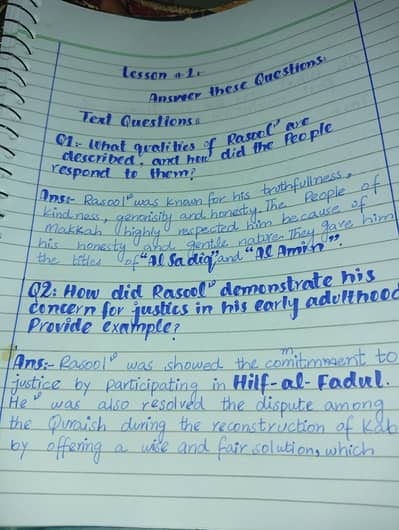 Lesson # 1:
Answer these Questions:
Text Questions:
Q1:- What qualities of Rasool are
described? and how did the People
respond to them?
Ans:- Rasool was known for his truthfullness,
kindness, generosity and honesty. The People of
makkah highly respected him because of
his honesty and gentle nature. They gave him
the titles of "Al Sadiq" and "Al Amin".
Q2: How did Rasool demonstrate his
concern for justics in his early adulthood
Provide example?
Ans:- Rasool was showed the comitmment to
justice by participating in Hilf-al-Fadul.
He was also resolved the dispute among
the Quraish during the reconstruction of Kab
by offering a wise and fair solution, which